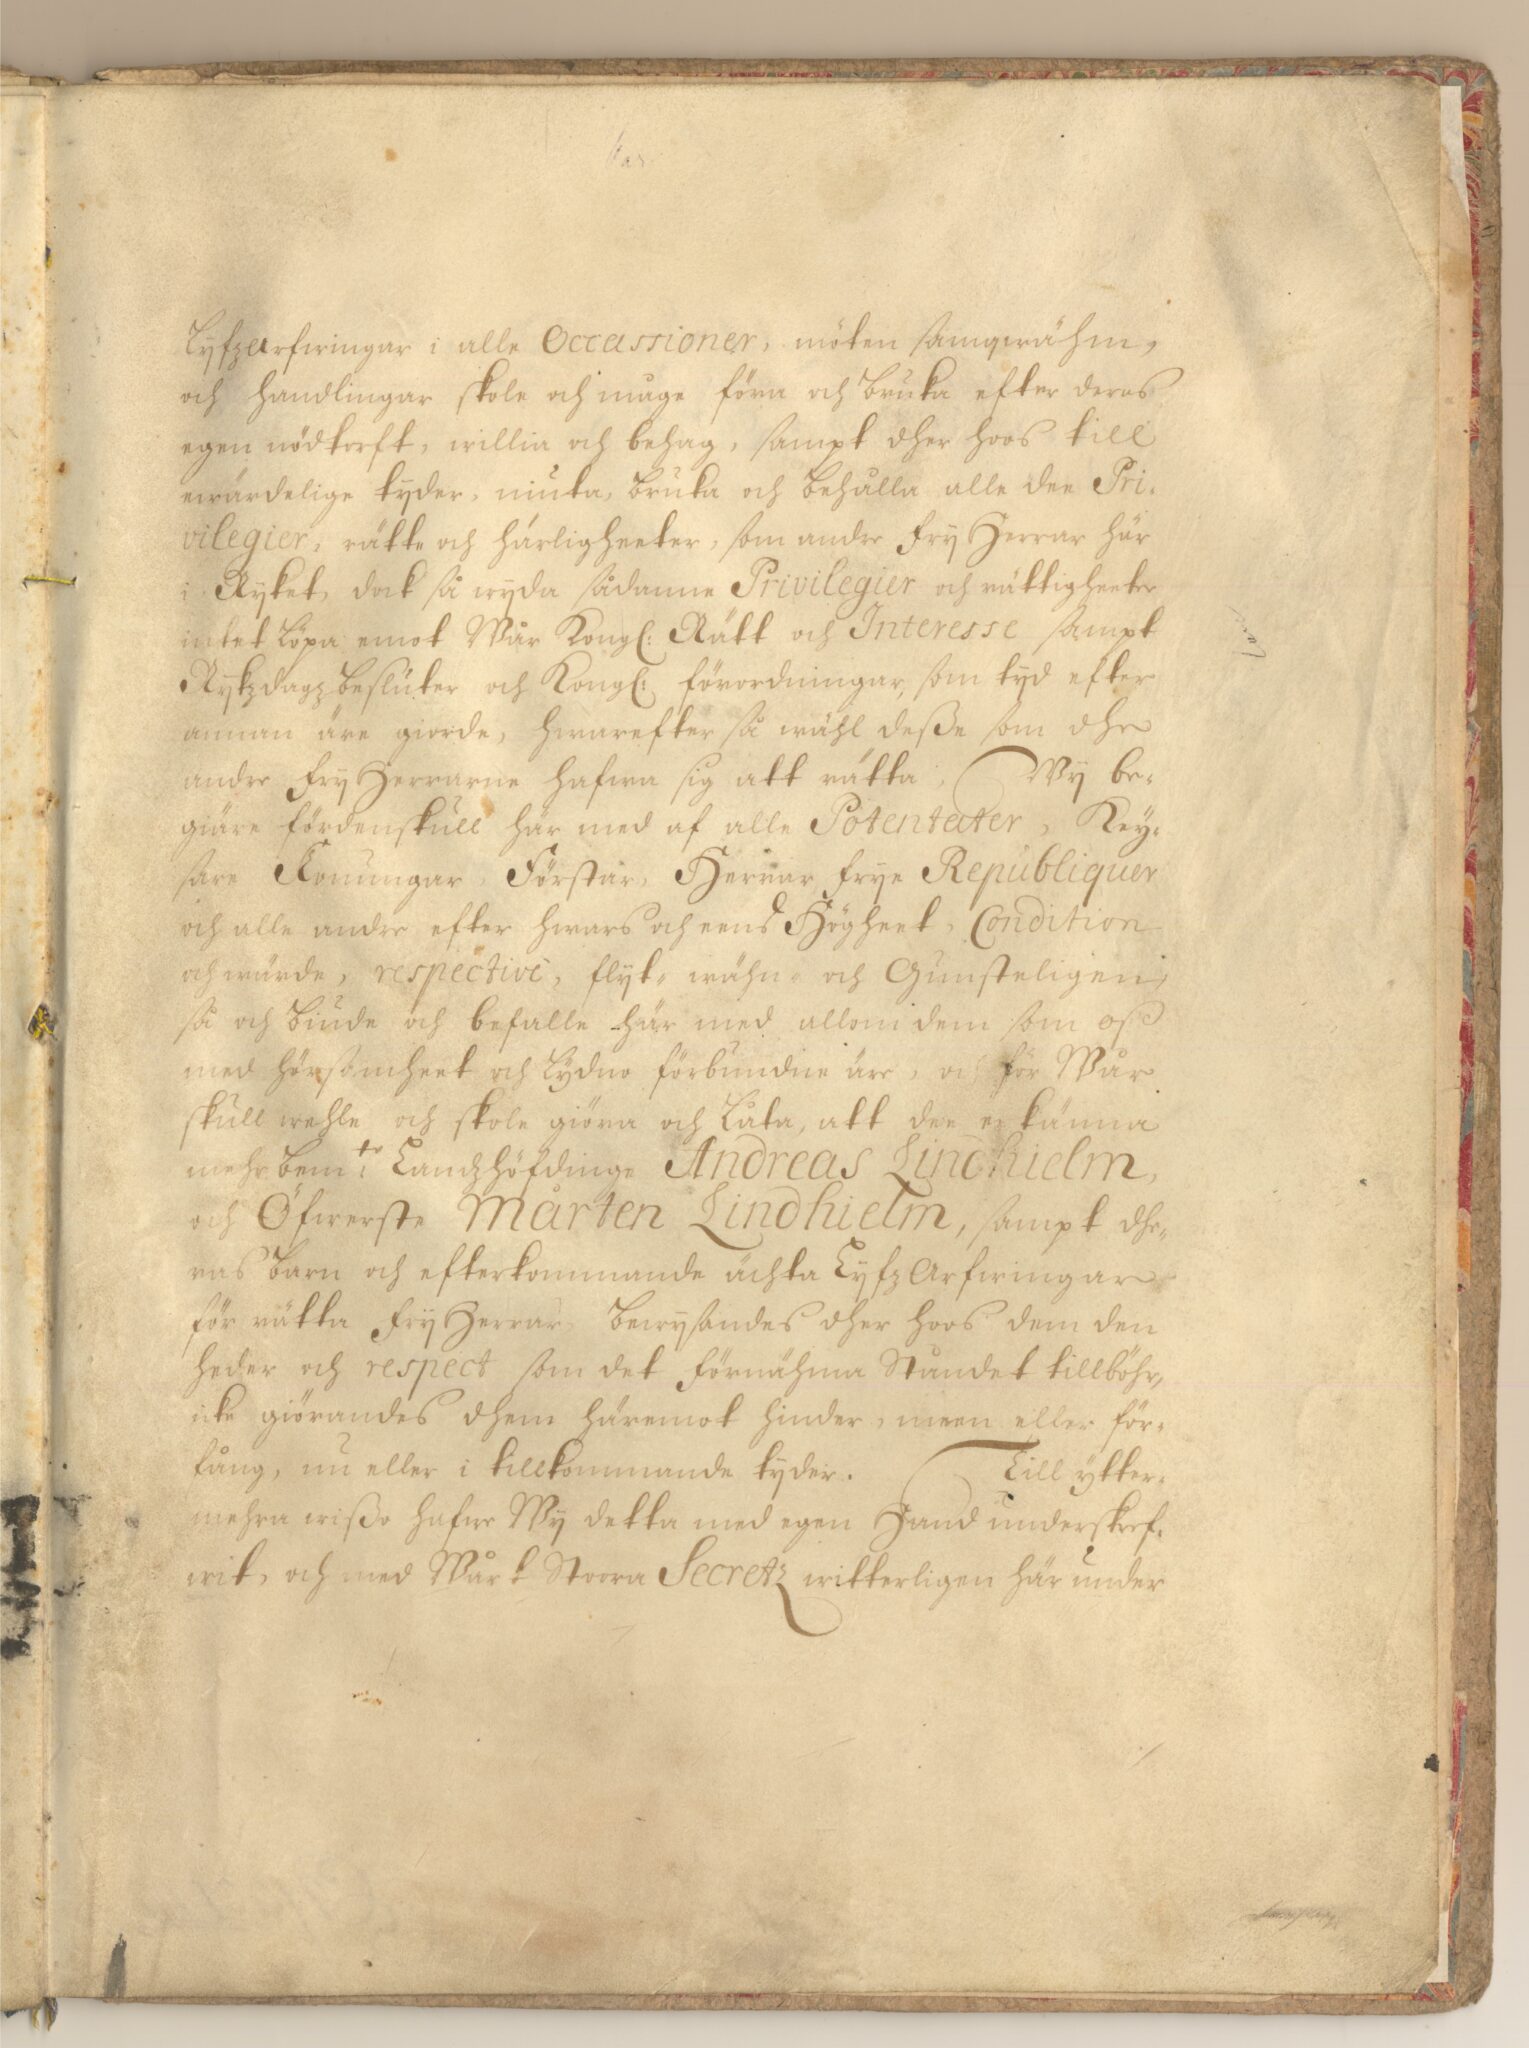 LyfzArfwingar i alle Occassioner, möten samqwähm,
och handlingar skole och måge föra och bruka efter deras
egen nödtorft, willia och behag, sampt dher hoos till
ewärdelige tyder, niuta, bruka och behålla alle dee Pri-
vilegier, rätt- och härligheeter, som andre fryHerrar här
i Ryket, dock så wyda sådanne Privilegier och rättigheeter
intet löpa emot Wår Kongl: Rätt och Interesse sampt
Rykzdagz beslüter och Kongl: förordningar, som tyd efter
annan äre giorde, hwarefter så wähl deße som dhe
andre fryHerrarne hafwa sig att rätta, Wy be-
giäre fördenskull här med af alle Potentater, Key-
sare Konungar, Förstar, Herrar, frye Republiquer
och alle andre efter hwars och eens Högheet, Condition
och wärde, respectivé, flyt- wähn- och Gunsteligen,
så och biude och befalle här med allom dem som oß
med hörsamheet och lydno förbundne äre, och för Wår
skull wehle och skole giöra och låta, att dee erkänna
mehrbem:te Landzhöfdinge Andreas Lindhielm,
och Öfwerste Mårten Lindhielm, sampt dhe-
ras barn och efterkommande ächta LyfzArfwingar
för rätta fryHerrar bewysandes dher hoos dem den
heder och respect som det förnähma Ståndet tillböhr,
icke giörandes dhem häremot hinder, meen eller för-
fång, nu eller i tillkommande tyder. Till ytter-
mehra wißo hafwe Wy detta med egen Hand underskref-
wit, och med Wårt Stoora Secretz witterligen här under